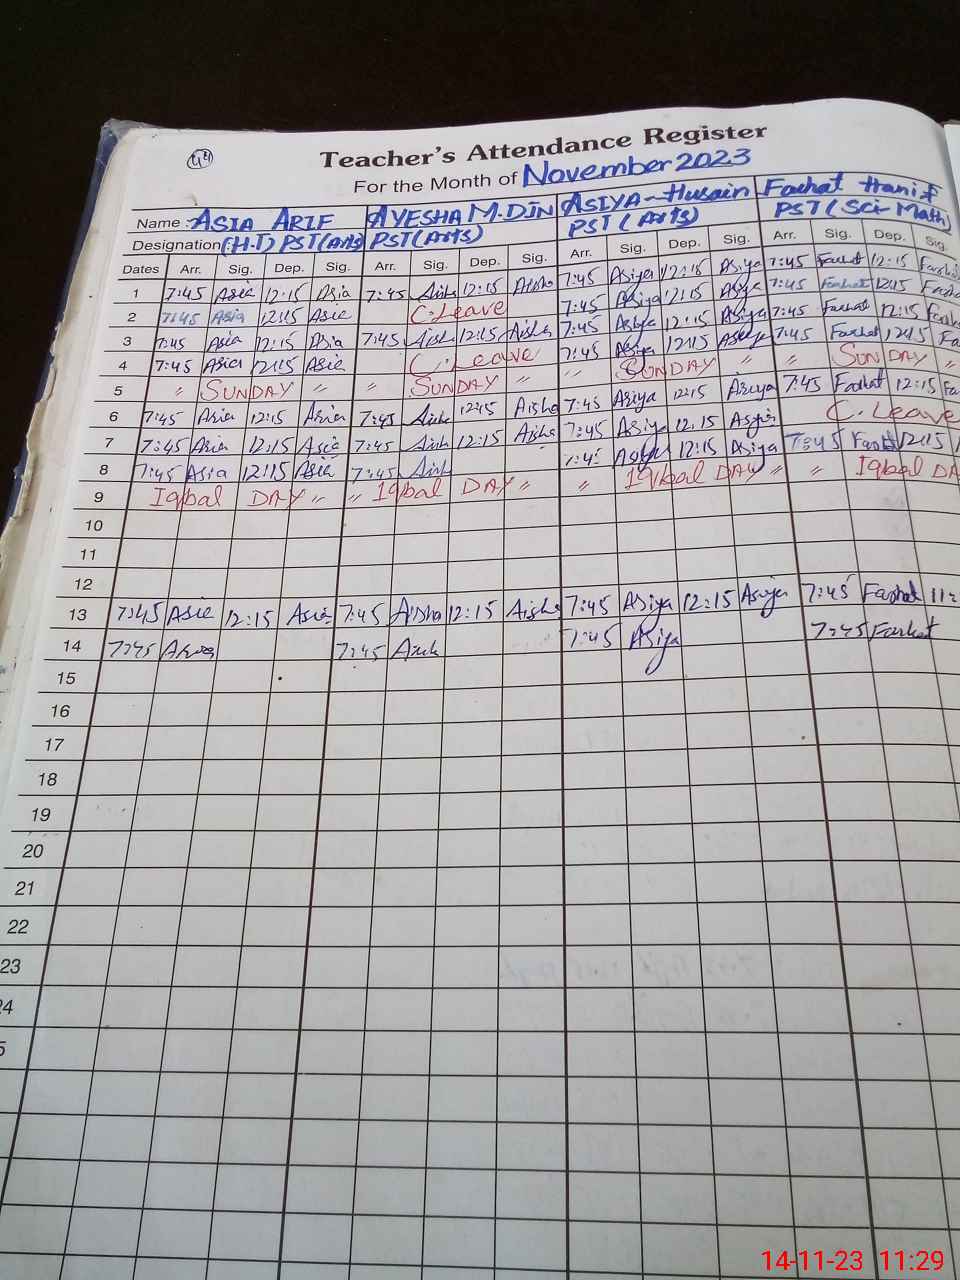 44
Teacher's Attendance Register
For the Month of November 2023
Name : ASIA ARIF AYESHA M.DIN ASIYA-Husain Farhat Hanif
Designation : (H.T) PST(Arts) PST(Arts) PST(Arts) PST(Sci-Math)
Dates Arr. Sig. Dep. Sig. Arr. Sig. Dep. Sig. Arr. Sig. Dep. Sig. Arr. Sig. Dep. Sig.
1 7:45 Asia 12:15 Asia 7:45 Aisha 12:15 Aisha 7:45 Asiya 12:15 Asiya 7:45 Farhat 12:15 Farha
2 7:45 Asia 12:15 Asia C.Leave 7:45 Asiya 12:15 Asiya 7:45 Farhat 12:15 Farha
3 7:45 Asia 12:15 Asia 7:45 Aisha 12:15 Aisha 7:45 Asiya 12:15 Asiya 7:45 Farhat 12:15 Farha
4 7:45 Asia 12:15 Asia C.Leave 7:45 Asiya 12:15 Asiya 7:45 Farhat 12:15 Fa
5 " SUNDAY " " SUNDAY " " SUNDAY " " SUNDAY "
6 7:45 Asia 12:15 Asia 7:45 Aisha 12:15 Aisha 7:45 Asiya 12:15 Asiya 7:45 Farhat 12:15 Fa
7 7:45 Asia 12:15 Asia 7:45 Aisha 12:15 Aisha 7:45 Asiya 12:15 Asiya C.Leave
8 7:45 Asia 12:15 Asia 7:45 Aish 7:45 Asiya 12:15 Asiya 7:45 Farhat 12:15
9 Iqbal DAY " " Iqbal DAY " " Iqbal DAY " " Iqbal DA
10
11
12
13 7:45 Asia 12:15 Asia 7:45 Aisha 12:15 Aisha 7:45 Asiya 12:15 Asiya 7:45 Farhat
14 7:45 7:45 Aish 7:45 Asiya 7:45 Farhat
15
16
17
18
19
20
21
22
23
24
5
14-11-23 11:29